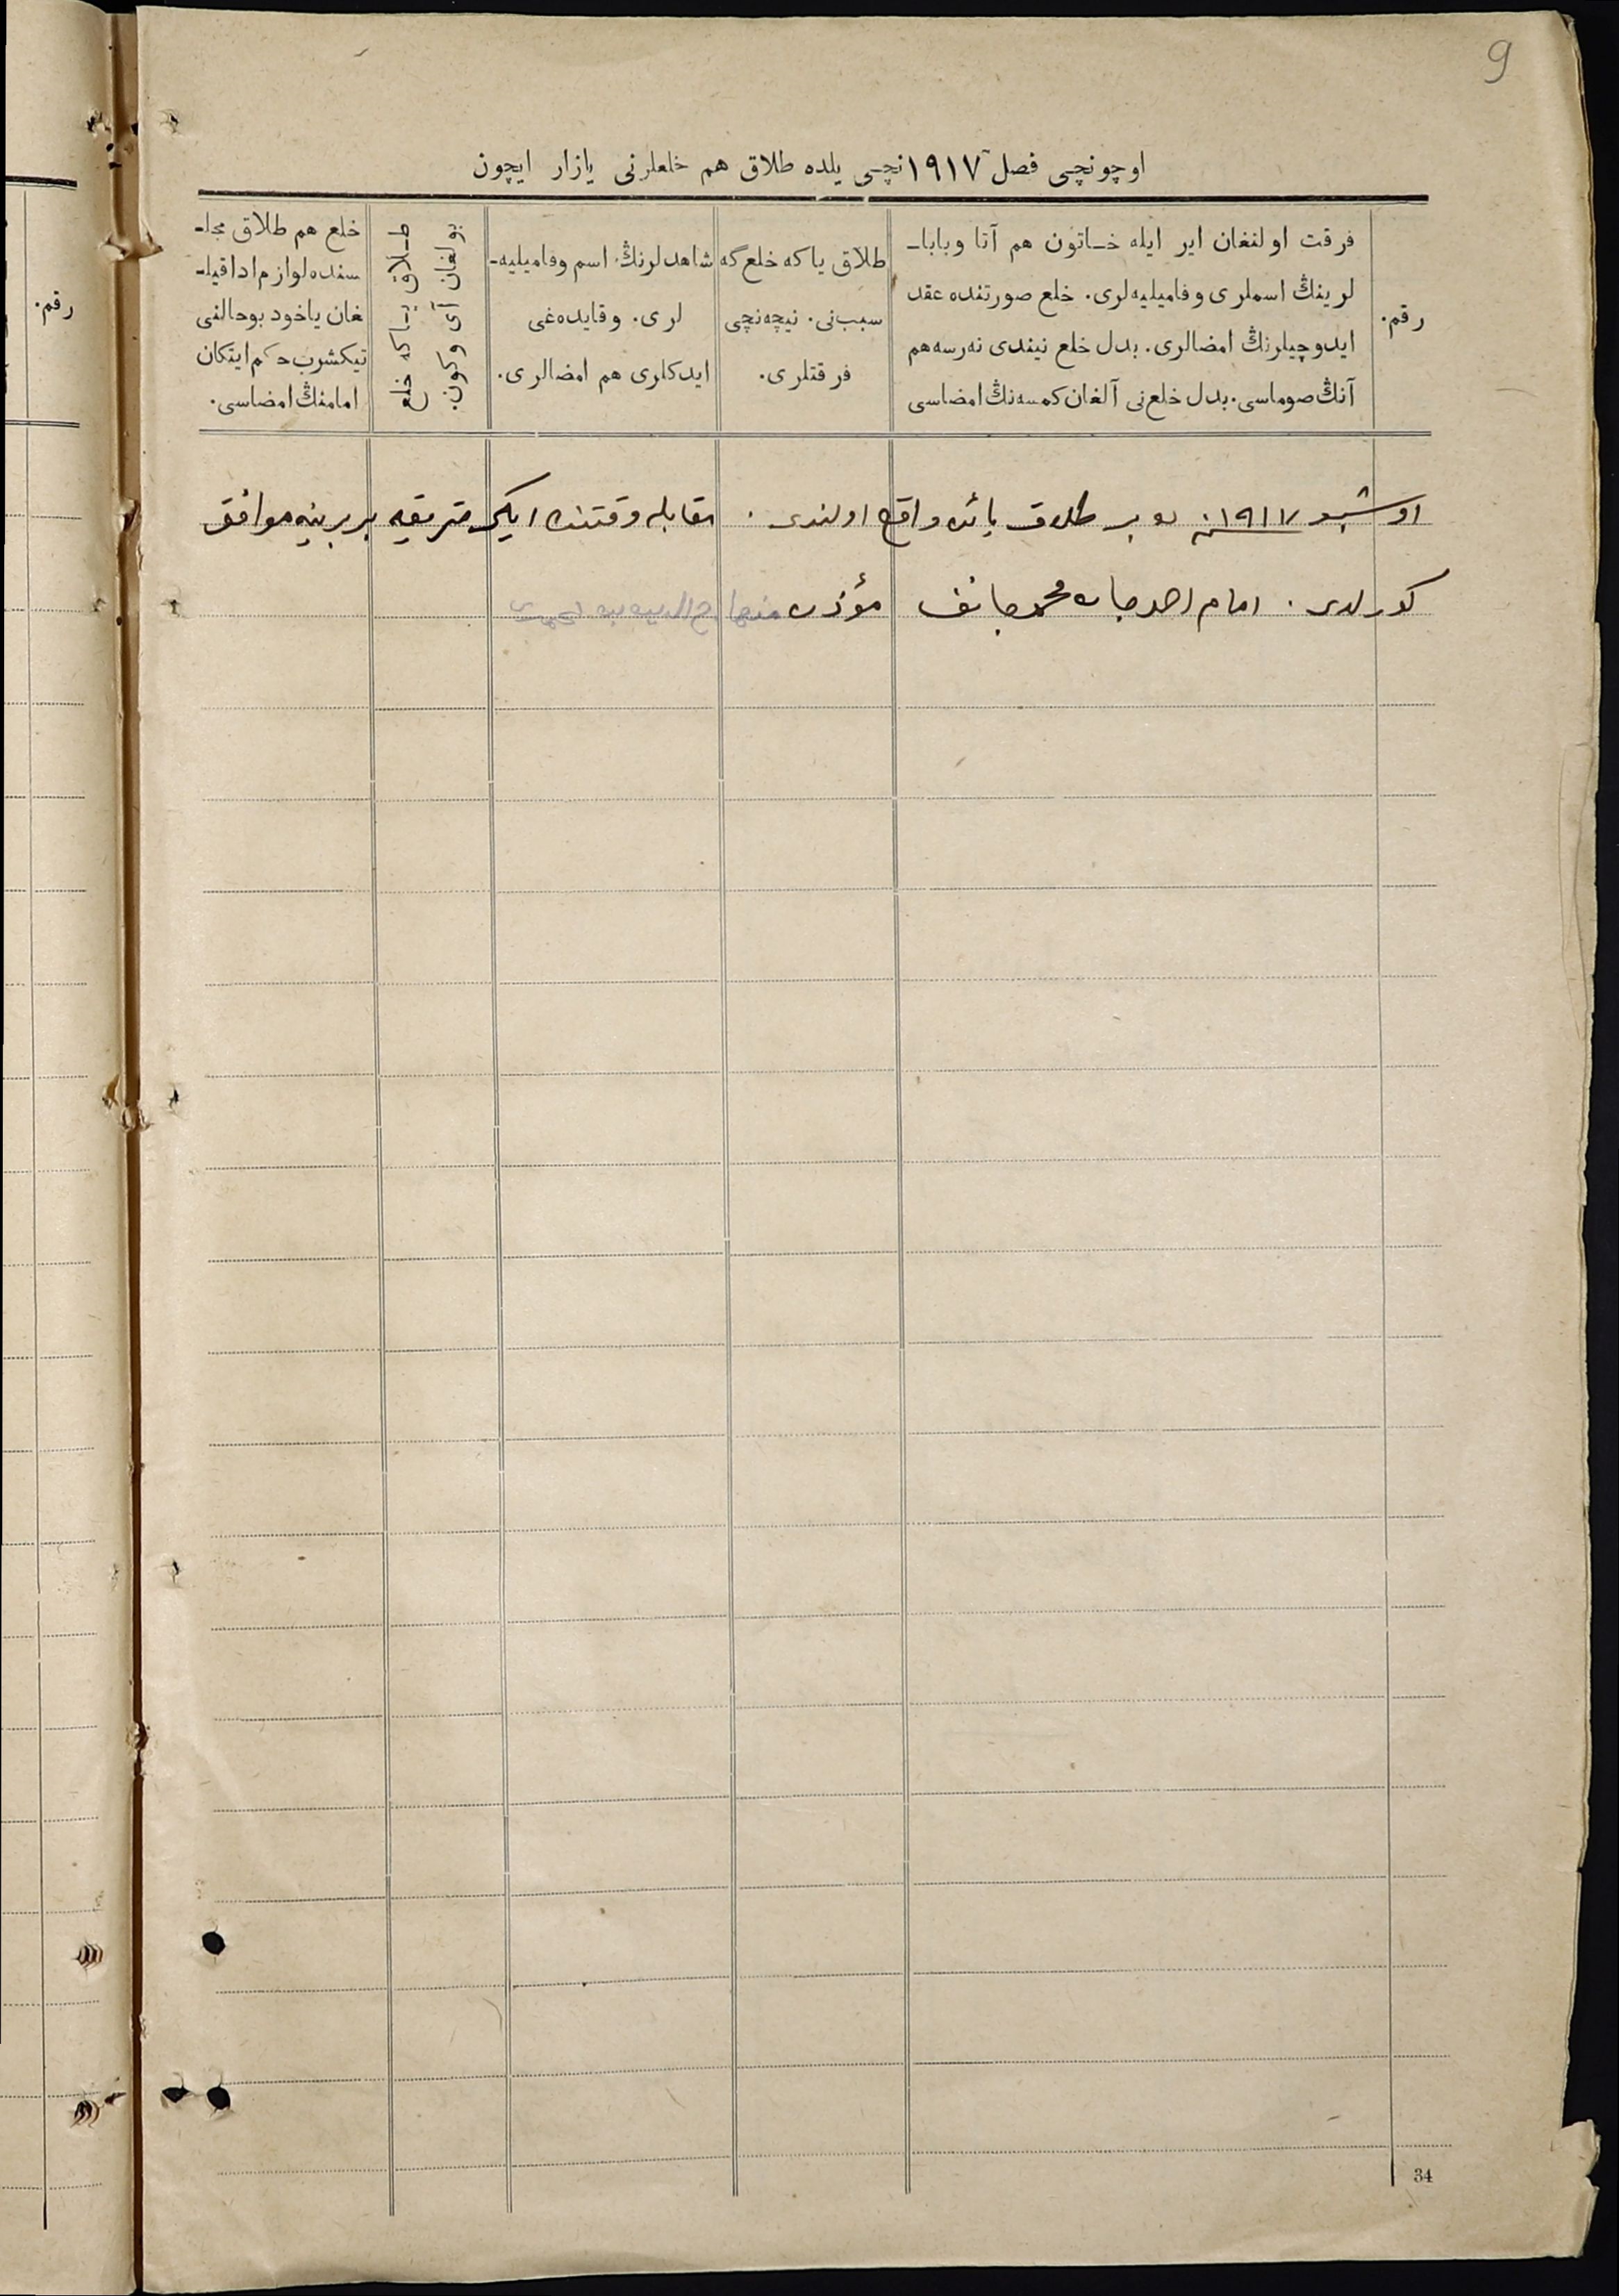 9
اوچونچی فصل ١٩١٧نچی یلده طلاق هم خلعلرنی یازار ایچون
رقم.
فرقت اولنغان ایر ایله خاتون هم آتا وبابا-
لرینڭ اسملری وفامیلیه‌لری. خلع صورتنده عقد
ایدوچیلرنڭ امضالری. بدل خلع نیندی نه‌رسه هم
آنڭ صوماسی. بدل خلع‌نی آلغان کمسه‌نڭ امضاسی
طلاق یاکه خلع‌گه
سبب‌نی. نیچه‌نچی
فرقتلری.
شاهدلرنڭ اسم وفامیلیه-
لری. وقایده‌غی
ایدکلری هم امضالری.
طلاق یاکه خلع
بولغان آی وکون.
خلع هم طلاق مجلـ-
سنده لوازم ادا قیلـ-
غان یاخود بوحالنی
تیکشرب حکم ایتکان
امامنڭ امضاسی.
رقم.
اوشبو ١٩١٧ بر طلاق بائن واقع اولندی. مقابله وقتنده ایکی متریقه بربرینه موافق
کورلدی. امام احمدجان محمدجانف مؤذن منهاج الدین
34